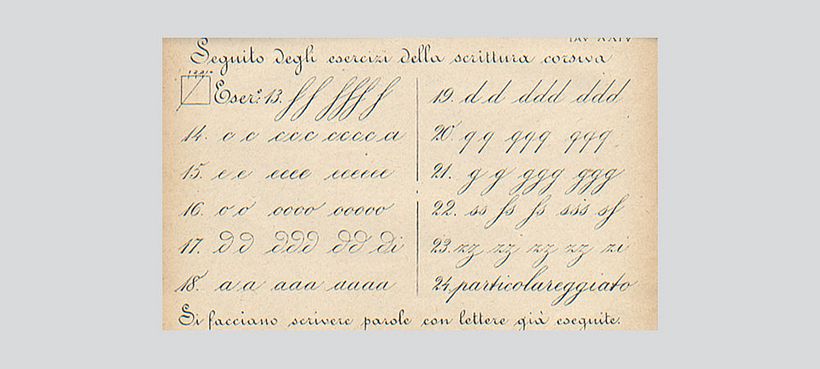 TAV. XXIV
Seguito degli esercizi della scrittura corsiva
Eser.º 13. f f f f f f
14. c c ccc cccc a
15. e e eeee eeeee
16. o o oooo ooooo
17. d d ddd dd di
18. a a aaa aaaa
19. d d ddd ddd
20. q q qqq qqq
21. g g ggg ggg
22. ss fs fs sss sf
23. zz zz zz zz zi
24. particolareggiato
Si facciano scrivere parole con lettere già eseguite.